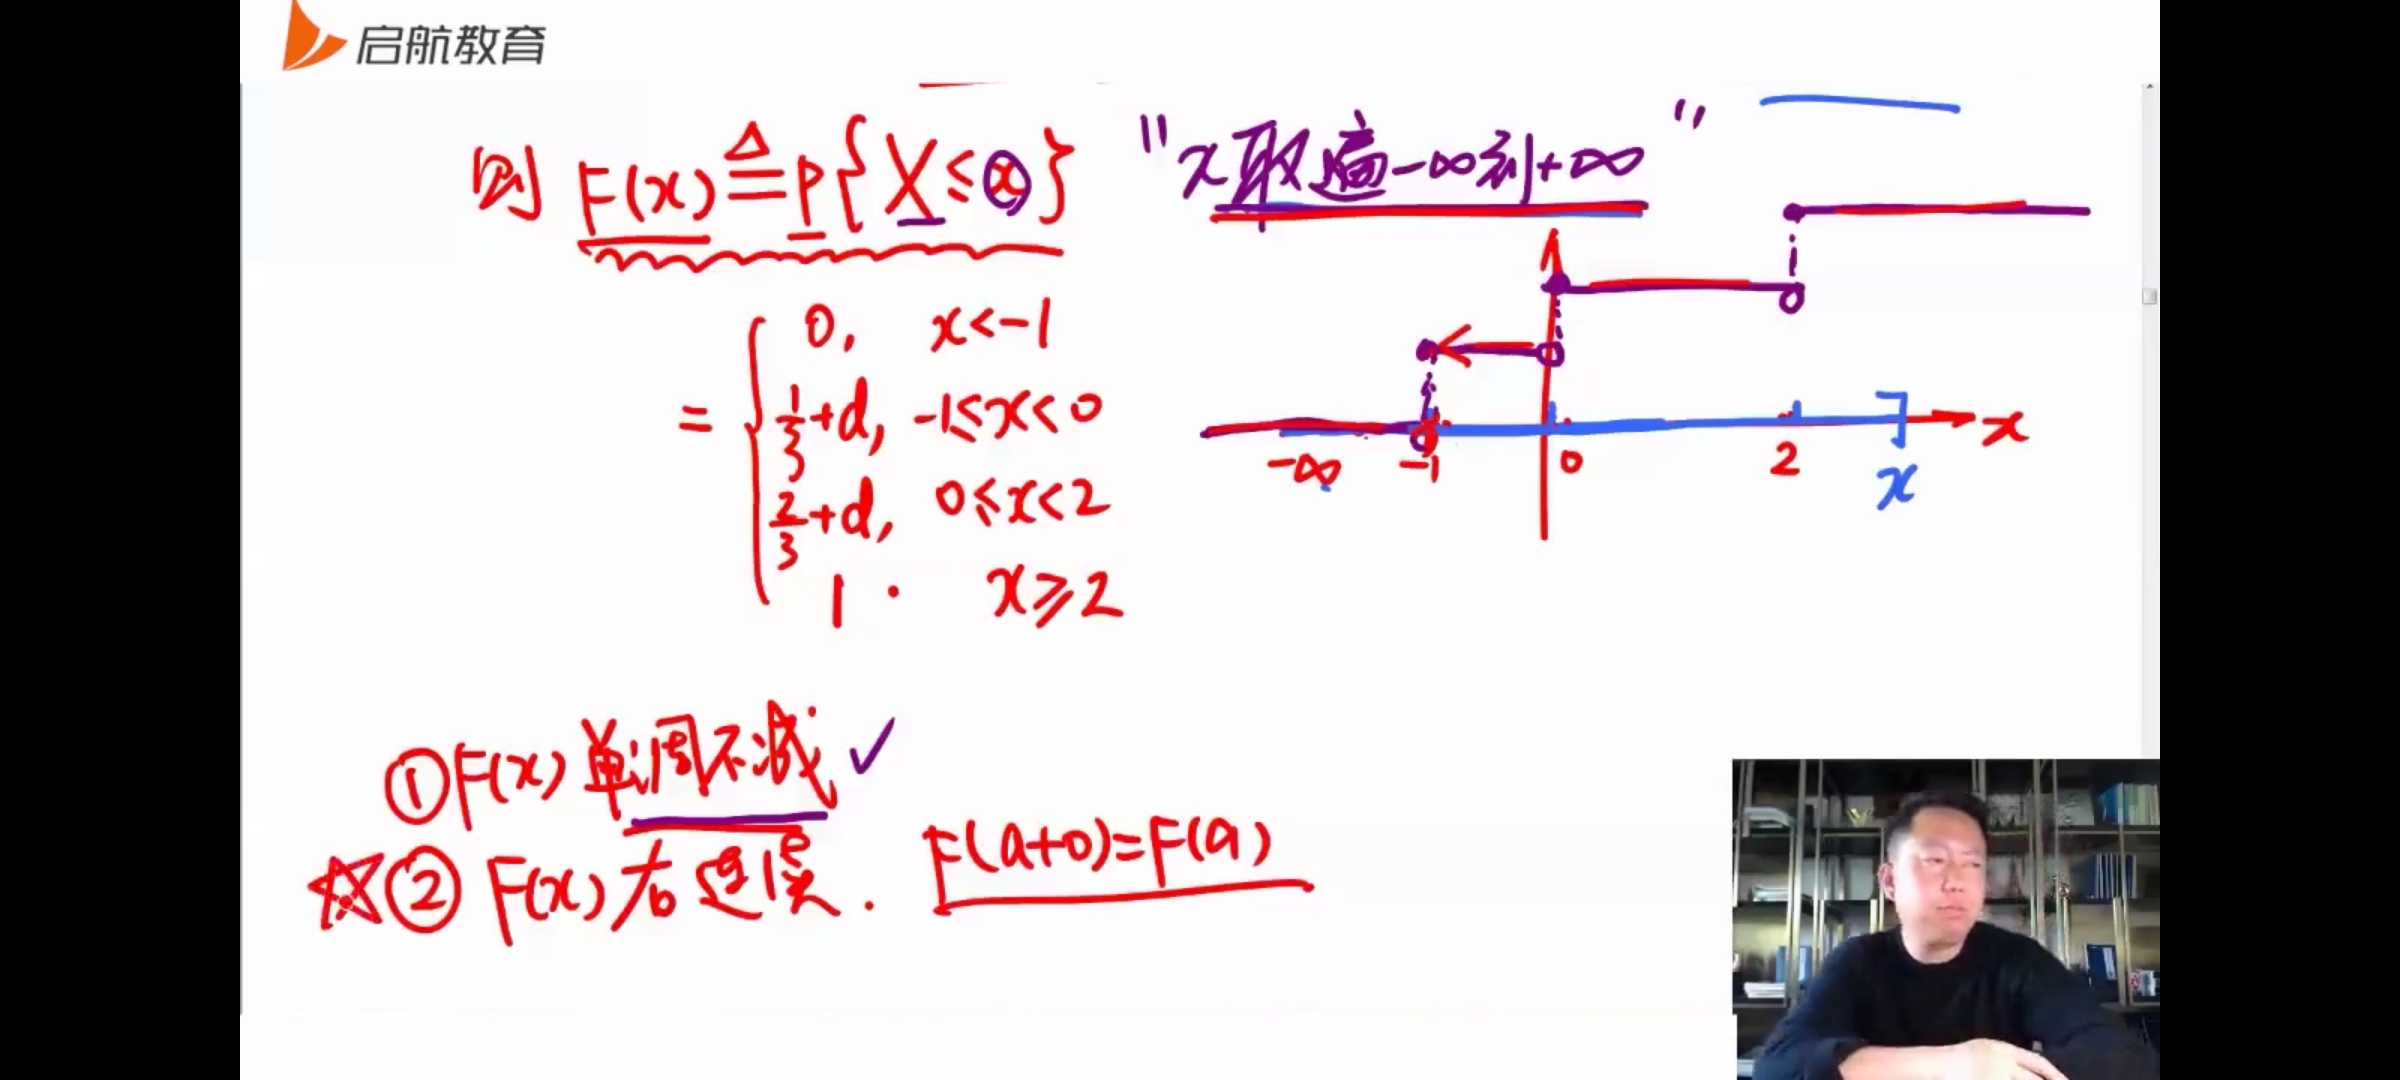 启航教育
则 F(x) ≜ P{X≤x} "x取遍-∞到+∞"
= { 0, x<-1
1/3+d, -1≤x<0
2/3+d, 0≤x<2
1. x≥2
-∞ -1 0 2 x
x
①F(x)单调不减 ✓
☆② F(x)右连续. F(a+0)=F(a)